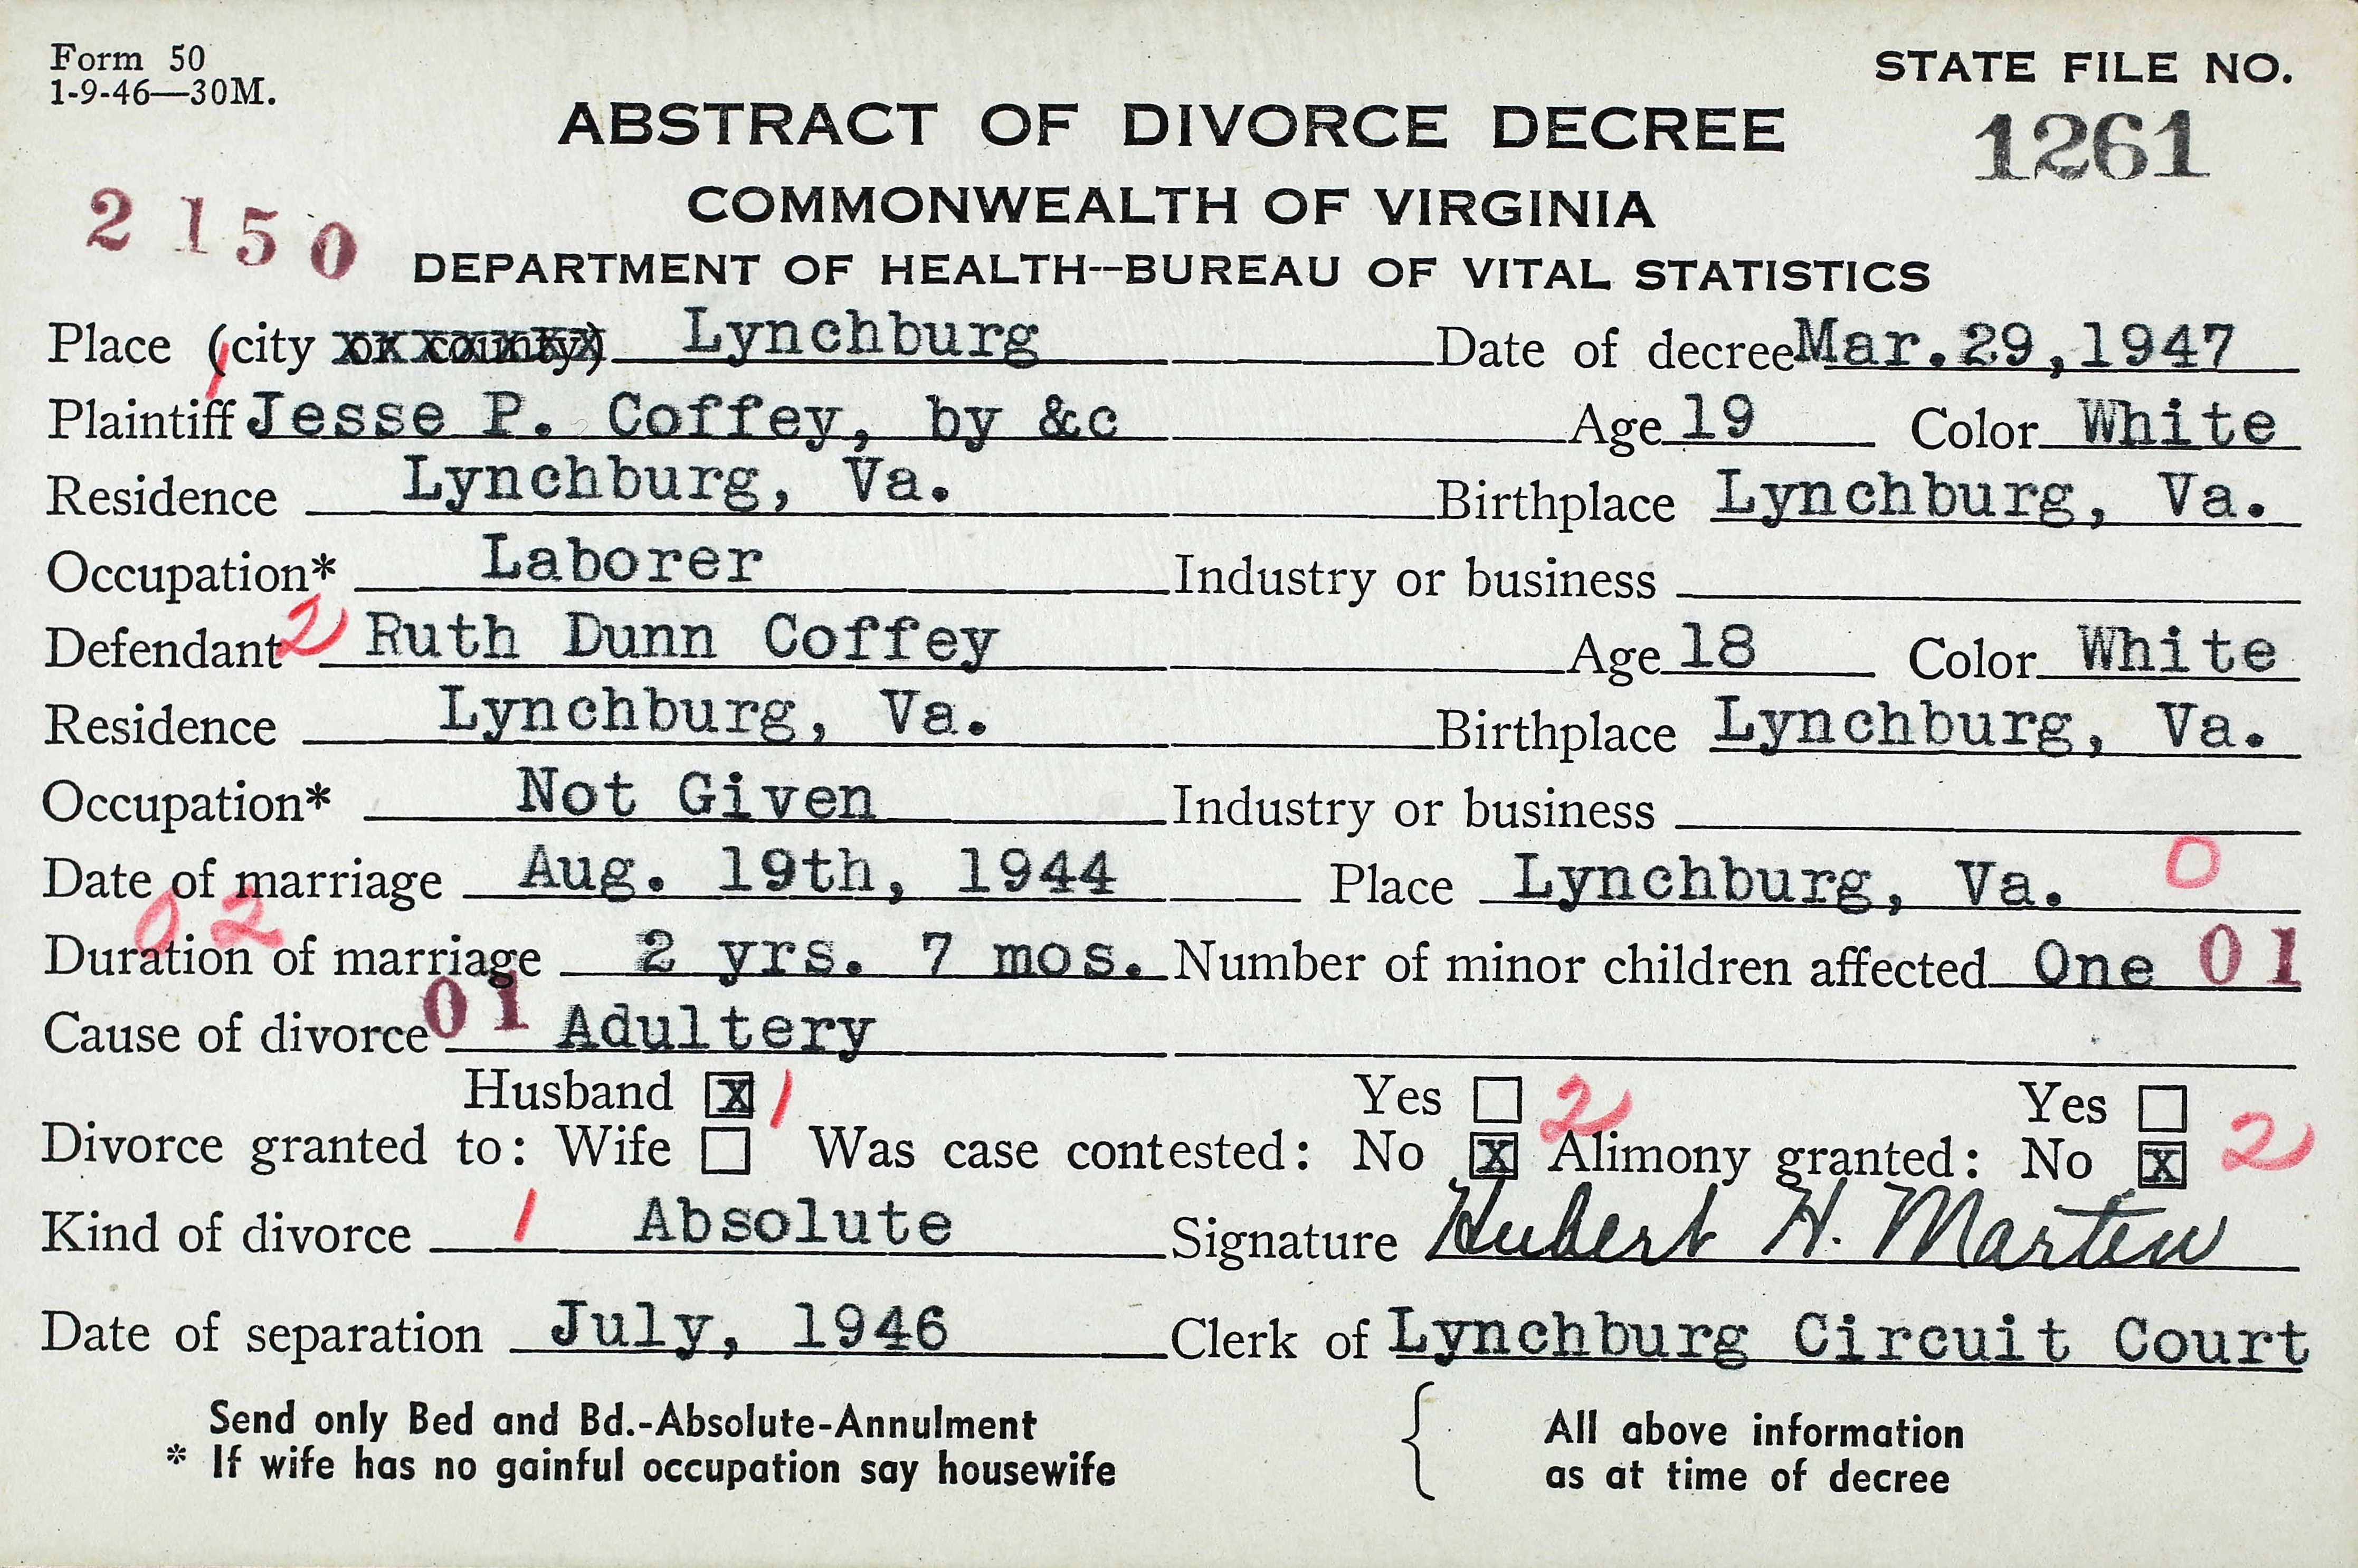 Form 50
1-9-46—30M.
STATE FILE NO.
1261
ABSTRACT OF DIVORCE DECREE
COMMONWEALTH OF VIRGINIA
2150
DEPARTMENT OF HEALTH--BUREAU OF VITAL STATISTICS
Place (city or county) Lynchburg Date of decree Mar.29,1947
Plaintiff Jesse P. Coffey, by &c Age 19 Color White
Residence Lynchburg, Va. Birthplace Lynchburg, Va.
Occupation* Laborer Industry or business
Defendant 2 Ruth Dunn Coffey Age 18 Color White
Residence Lynchburg, Va. Birthplace Lynchburg, Va.
Occupation* Not Given Industry or business
Date of marriage Aug. 19th, 1944 Place Lynchburg, Va. 0
02
Duration of marriage 2 yrs. 7 mos. Number of minor children affected One 01
Cause of divorce 01 Adultery
Husband X 1 Yes 2 Yes
Divorce granted to: Wife Was case contested: No X Alimony granted: No X 2
Kind of divorce 1 Absolute Signature Hubert H. Martin
Date of separation July, 1946 Clerk of Lynchburg Circuit Court
Send only Bed and Bd.-Absolute-Annulment All above information
* If wife has no gainful occupation say housewife as at time of decree